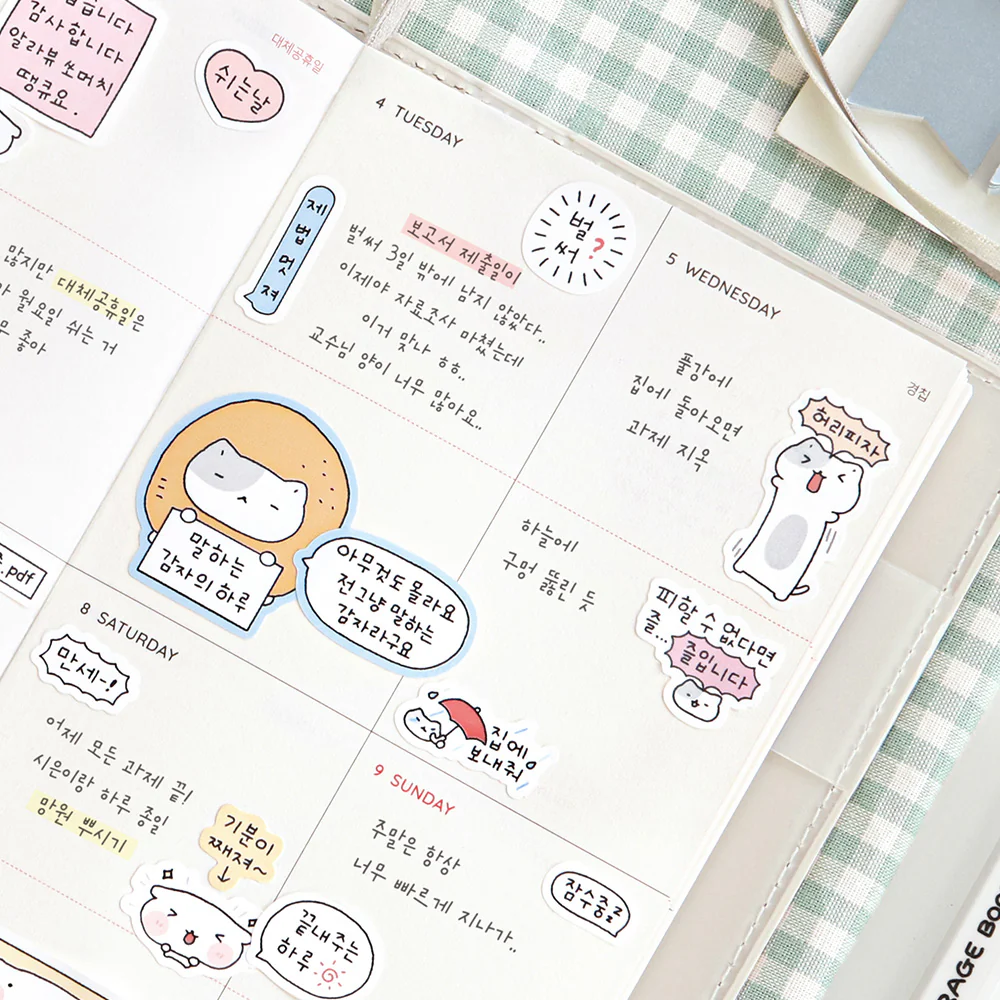 감사합니다
알라뷰 쏘머치
땡큐요.
대체공휴일
쉬는날
많지만 대체공휴일은
월요일 쉬는 거
좋아
.pdf
4 TUESDAY
제법 멋져
벌써?
보고서 제출일이
벌써 3일 밖에 남지 않았다..
이제야 자료조사 마쳤는데
이거 맞나 ㅎㅎ..
교수님 양이 너무 많아요..
말하는
감자의 하루
아무것도 몰라요
전 그냥 말하는
감자라구요
5 WEDNESDAY
경칩
풀강에
집에 돌아오면
과제 지옥
허리피자
하늘에
구멍 뚫린 듯
피할 수 없다면
즐...
즐입니다
집에
보내줘
8 SATURDAY
만세-!
어제 모든 과제 끝!
시은이랑 하루 종일
망원 뿌시기
기분이
째져~
↓
끝내주는
하루
9 SUNDAY
주말은 항상
너무 빠르게 지나가..
잠수중